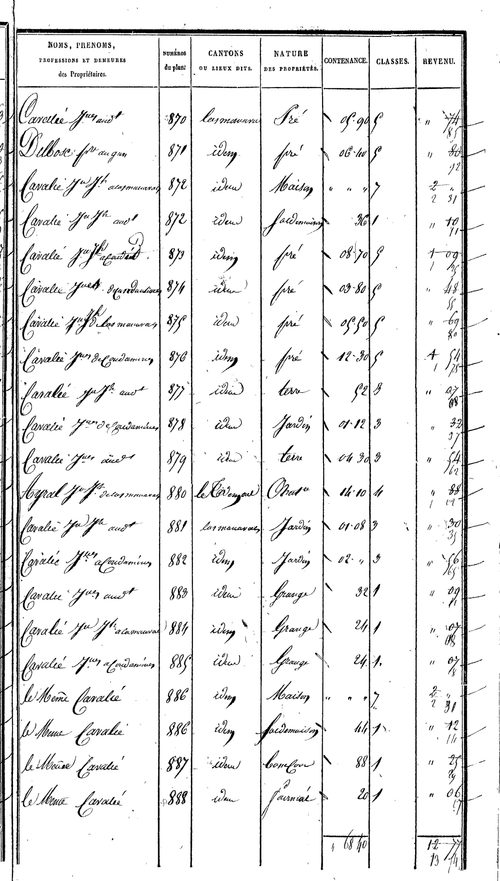 NOMS, PRENOMS, PROFESSIONS ET DEMEURES des Propriétaires. NUMÉROS du plan. CANTONS OU LIEUX DITS. NATURE DES PROPRIÉTÉS. CONTENANCE. CLASSES. REVENU.
Cavalié Jques audt 870 las mauvrai Pré 05·90 5 " 74 85
Delbosc 871 idem pré 06·40 5 " 80 92
Cavalié Jn Jh a las mauvrai 872 idem Maison " " " 7 2 " 2 31
Cavalié Jn Jh audt 872 idem sol de maison 36 1 " 10 11
Cavalié Jn Jh 873 idem pré 08·70 5 1 09
Cavalié Jques de Condamines 874 idem pré 03·80 5 " 48
Cavalié Jn Jh de las mauvrai 875 idem pré 05·50 5 " 69 80
Cavalié Jques de Condamines 876 idem pré 12·30 5 1 54
Cavalié Jn Jh audt 877 idem terre 52 3 " 07 08
Cavalié Jques de Condamines 878 idem Jardin 01·12 3 " 32 37
Cavalié Jques audt 879 idem terre 04·30 3 " 54 62
Ayral Jn Jh de las mauvrai 880 14·10 4 " 88
Cavalié Jn Jh audt 881 las mauvrai Jardin 01·08 3 " 30 35
Cavalié Jques a Condamines 882 idem Jardin 02· " 3 " 56 65
Cavalié Jques audt 883 idem Grange 32 1 " 09 11
Cavalié Jn Jh a las mauvrai 884 idem Grange 24 1 " 07 08
Cavalié Jques a Condamines 885 idem Grange 24 1 " 07 8
le Meme Cavalié 886 idem Maison " " " 7 2 " 2 31
le Meme Cavalié 886 idem sol de maison 44 1 " 12 14
le Meme Cavalié 887 idem 88 1 " 25 29
le Meme Cavalié 888 idem fournial 20 1 " 06
68 40 12 77 13 14